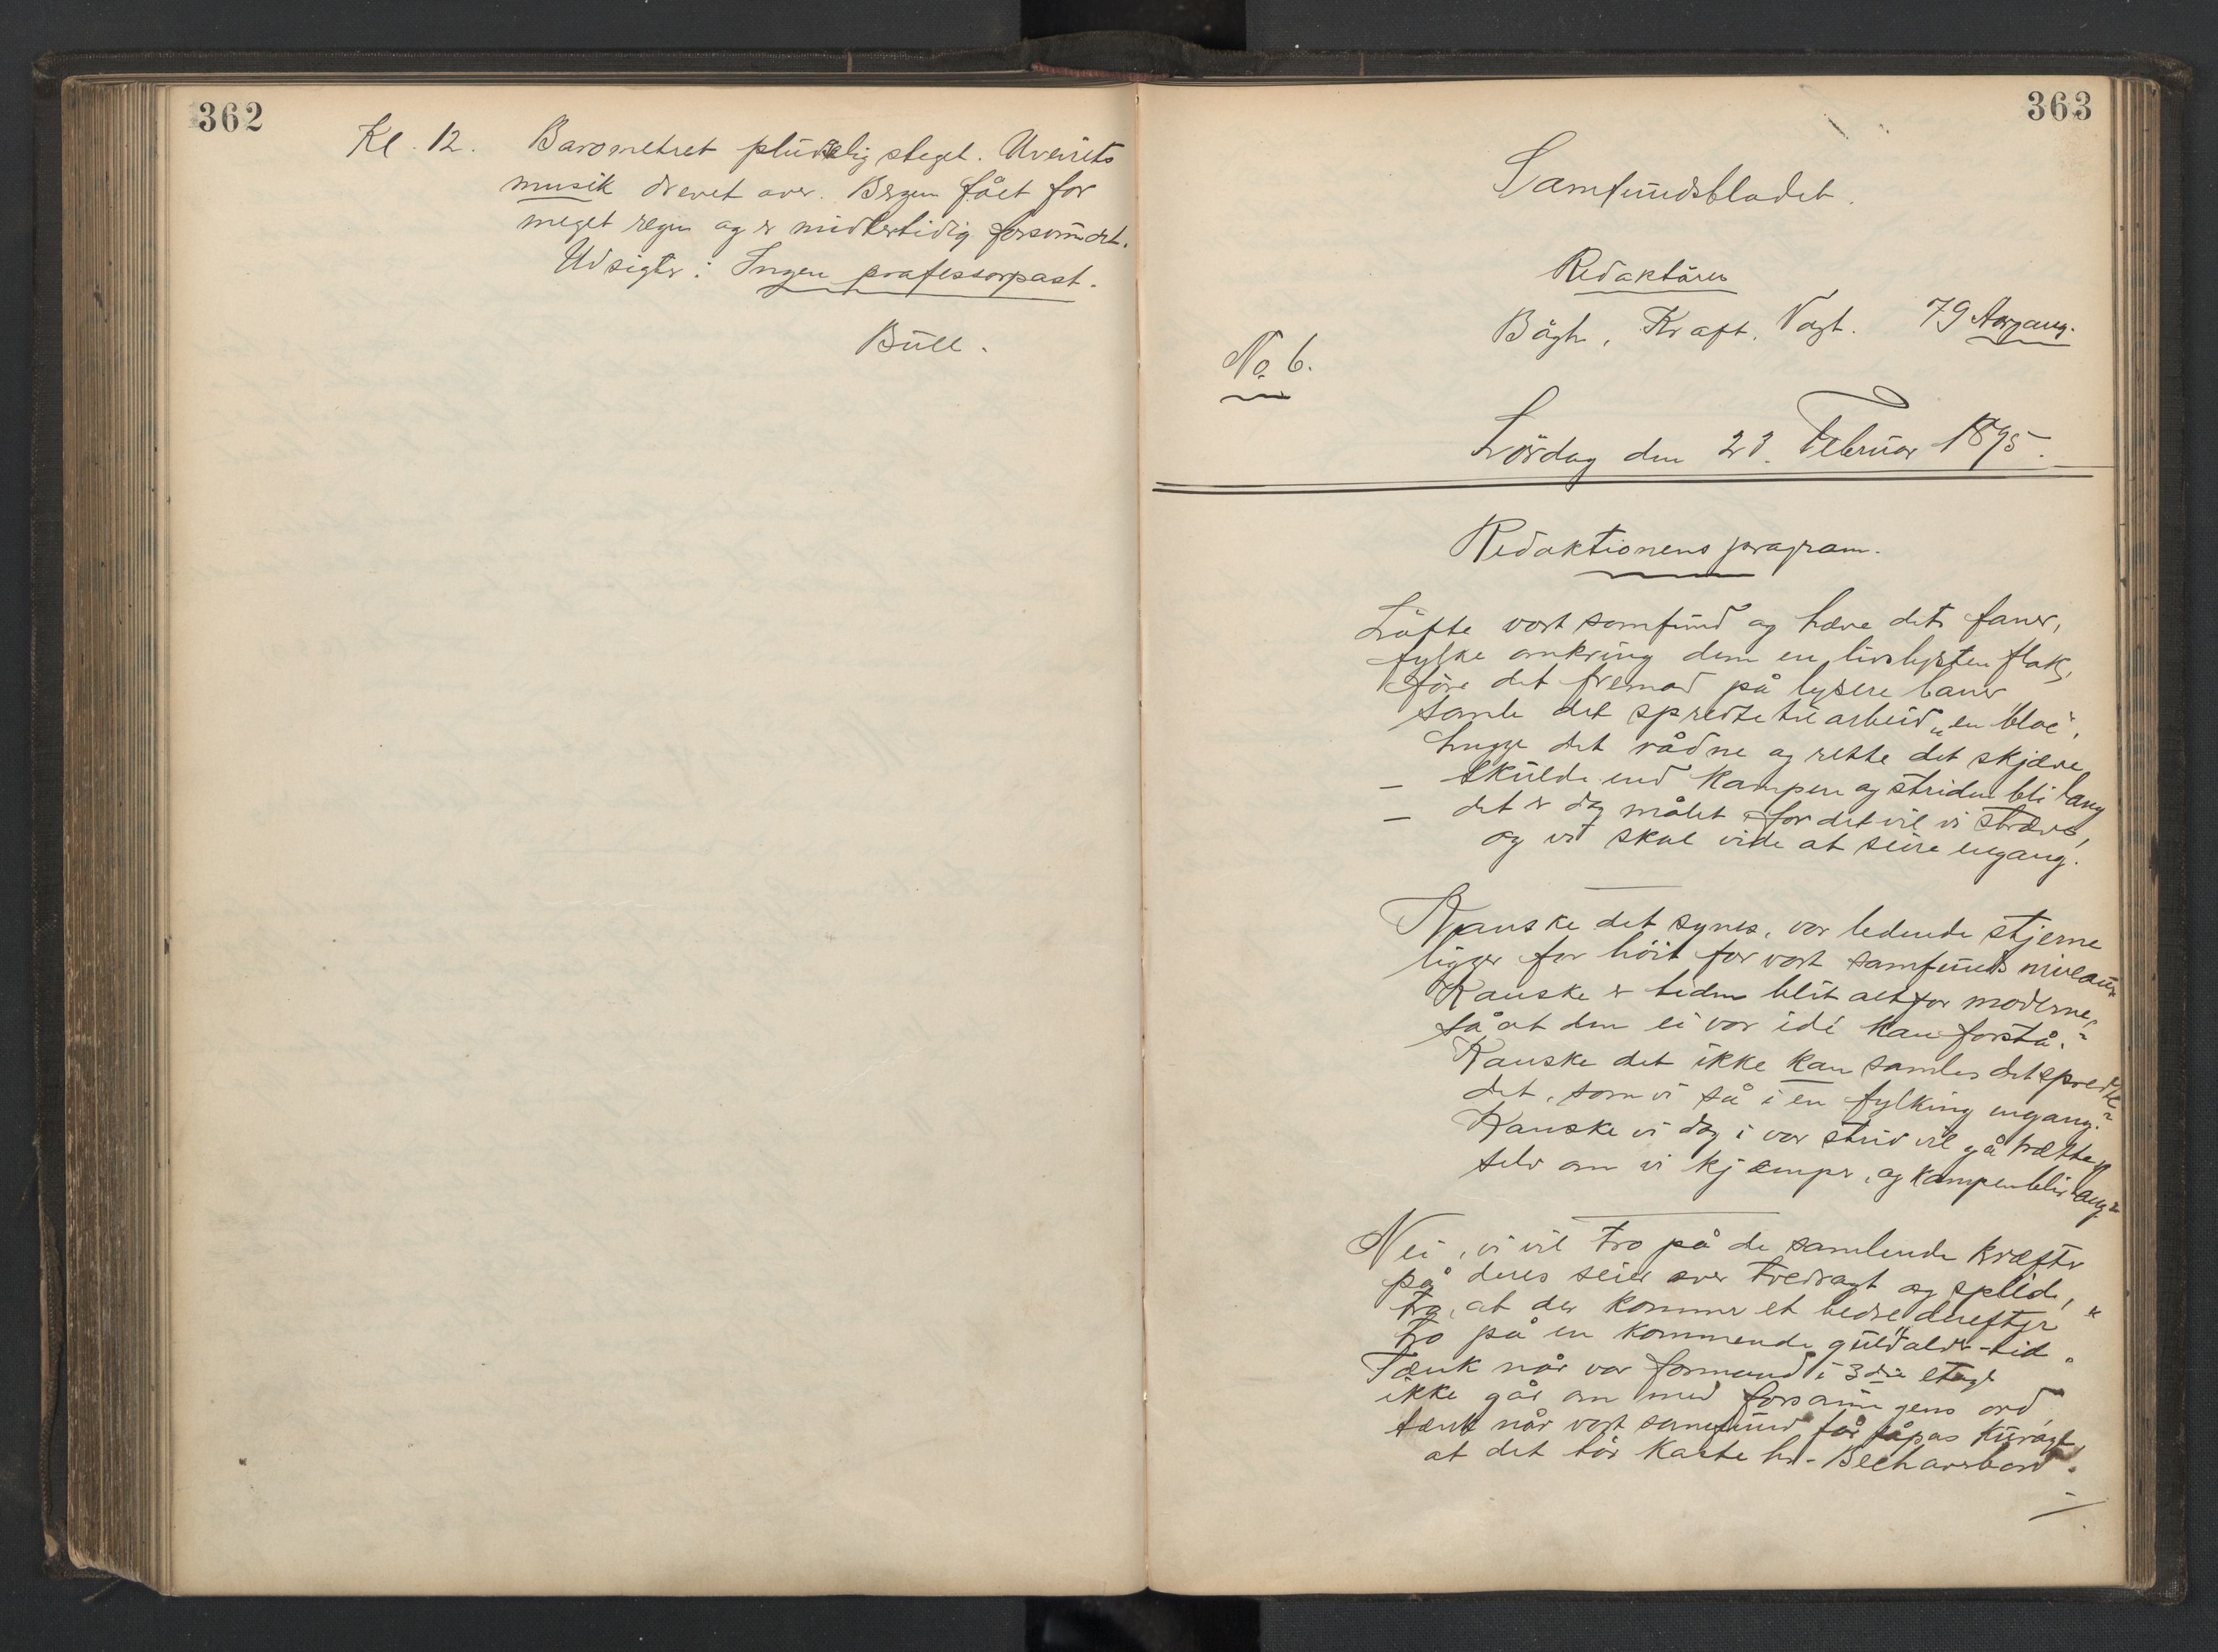 362
Kl. 12. Barometret pludselig steget. Uveirets
musik drevet over. Bergen fået for
meget regn og er midlertidig forsvundet.
Udsigter: Ingen professorpost.
Büll.
363
Samfundsbladet.
Redaktører
Bågh, Kraft, Vogt. 79 Aargang.
No 6.
Lördag den 23. Februar 1895.
Redaktionens program.
Löfte vort samfund og hæve dets faner,
fylke omkring dem en livslysten flok,
före det fremad på lysere baner
samle det spredte til arbeid „en bloc“,
hugge det rådne og rette det skjæve,
– skulde end kampen og striden bli lang
– det er dog målet for det vil vi stræve,
og vi skal vide at seire engang.
Kanske det synes, vor ledende stjerne
ligger for höit for vort samfunds niveau?
Kanske er tiden blit altfor moderne,
så at den ei vor idé kan forstå?
Kanske det ikke kan samles det spredte
det, som vi så i en fylking engang?
Kanske vi dog i vor strid vil gå trætte,
selv om vi kjæmper, og kampen blir lang?
Nei, vi vil tro på de samlende kræfter
på deres seier over tvedragt og splid,
tro, at der kommer et bedre derefter
tro på en kommende guldalder-tid.
Tænk når vor formand i 3die etage
ikke går om med forsamlingens ord,
tænk når vort samfund får såpas kurage,
at det tör kaste hr.